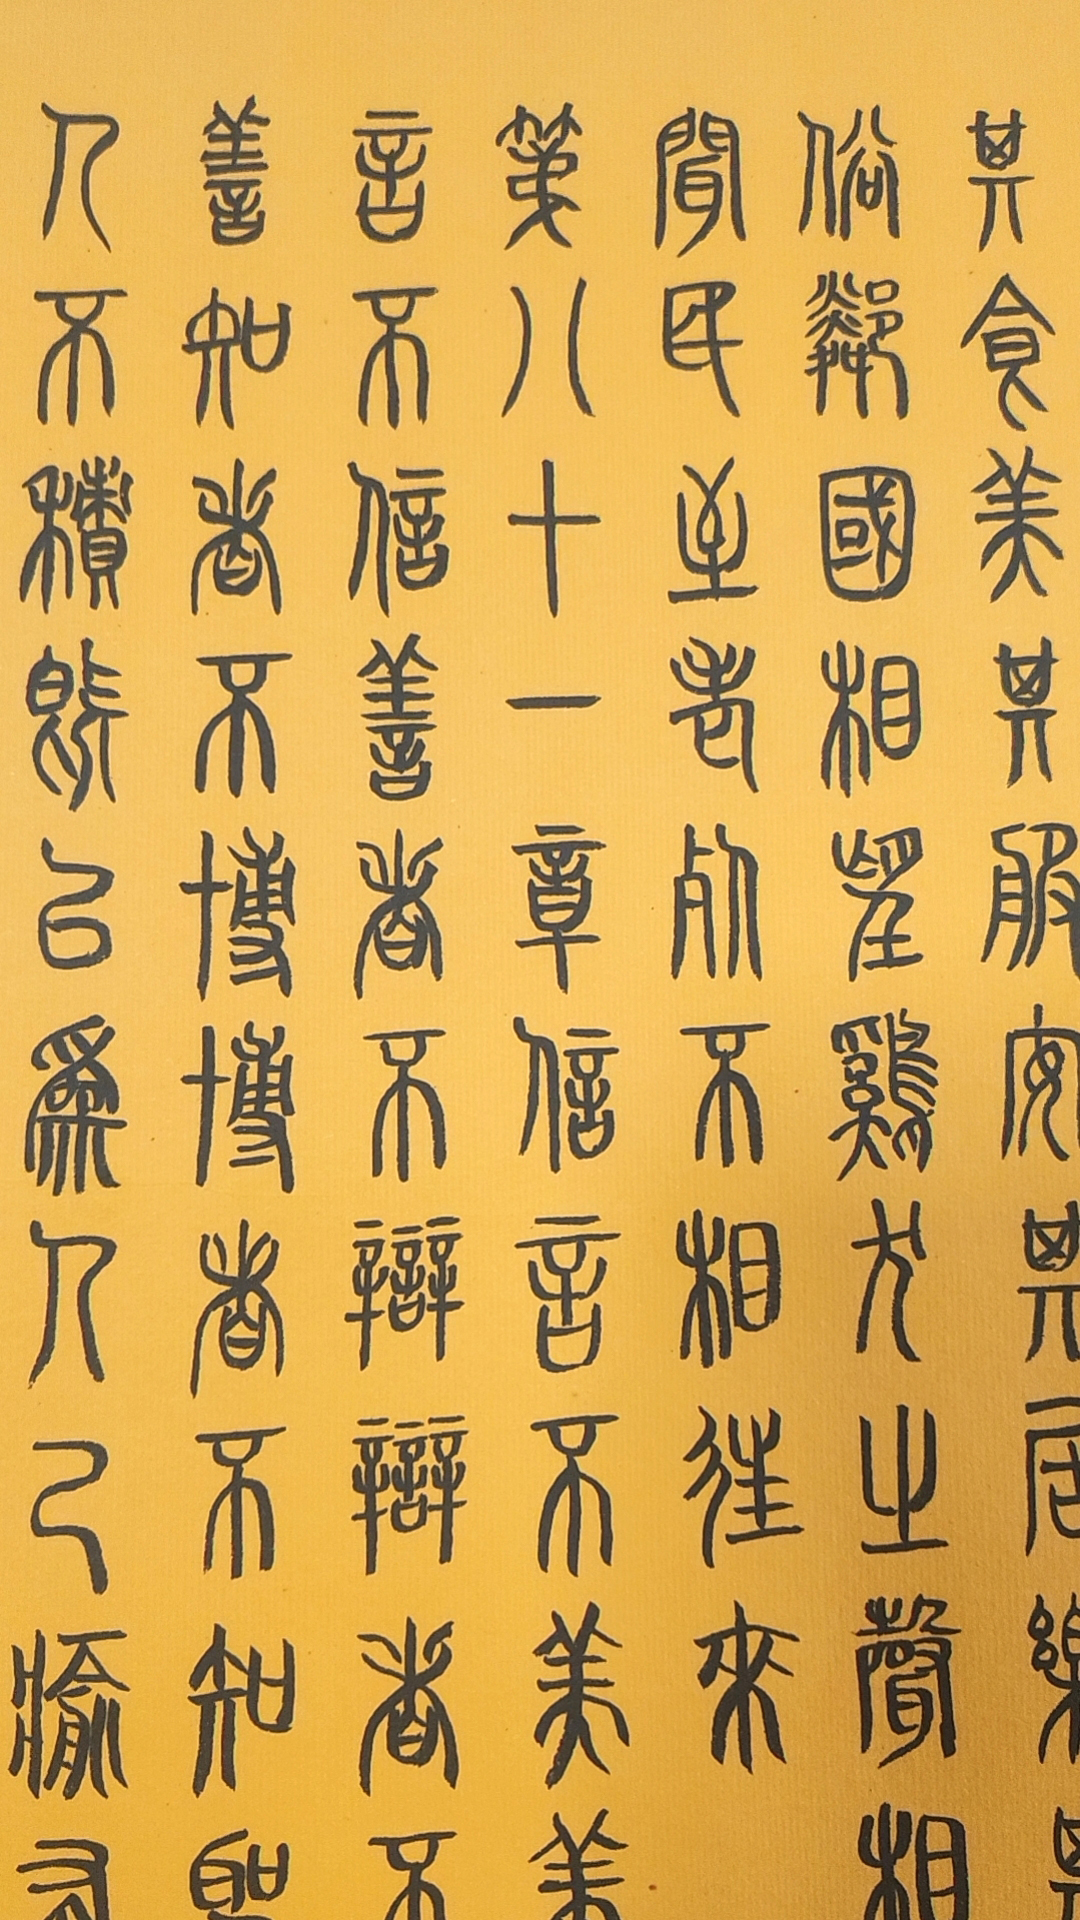 甘食美其服安其居樂其
俗鄰國相望鷄犬之聲相
聞民至老死不相往來
第八十一章信言不美美
言不信善者不辯辯者不
善知者不博博者不知聖
人不積既以為人己愈有